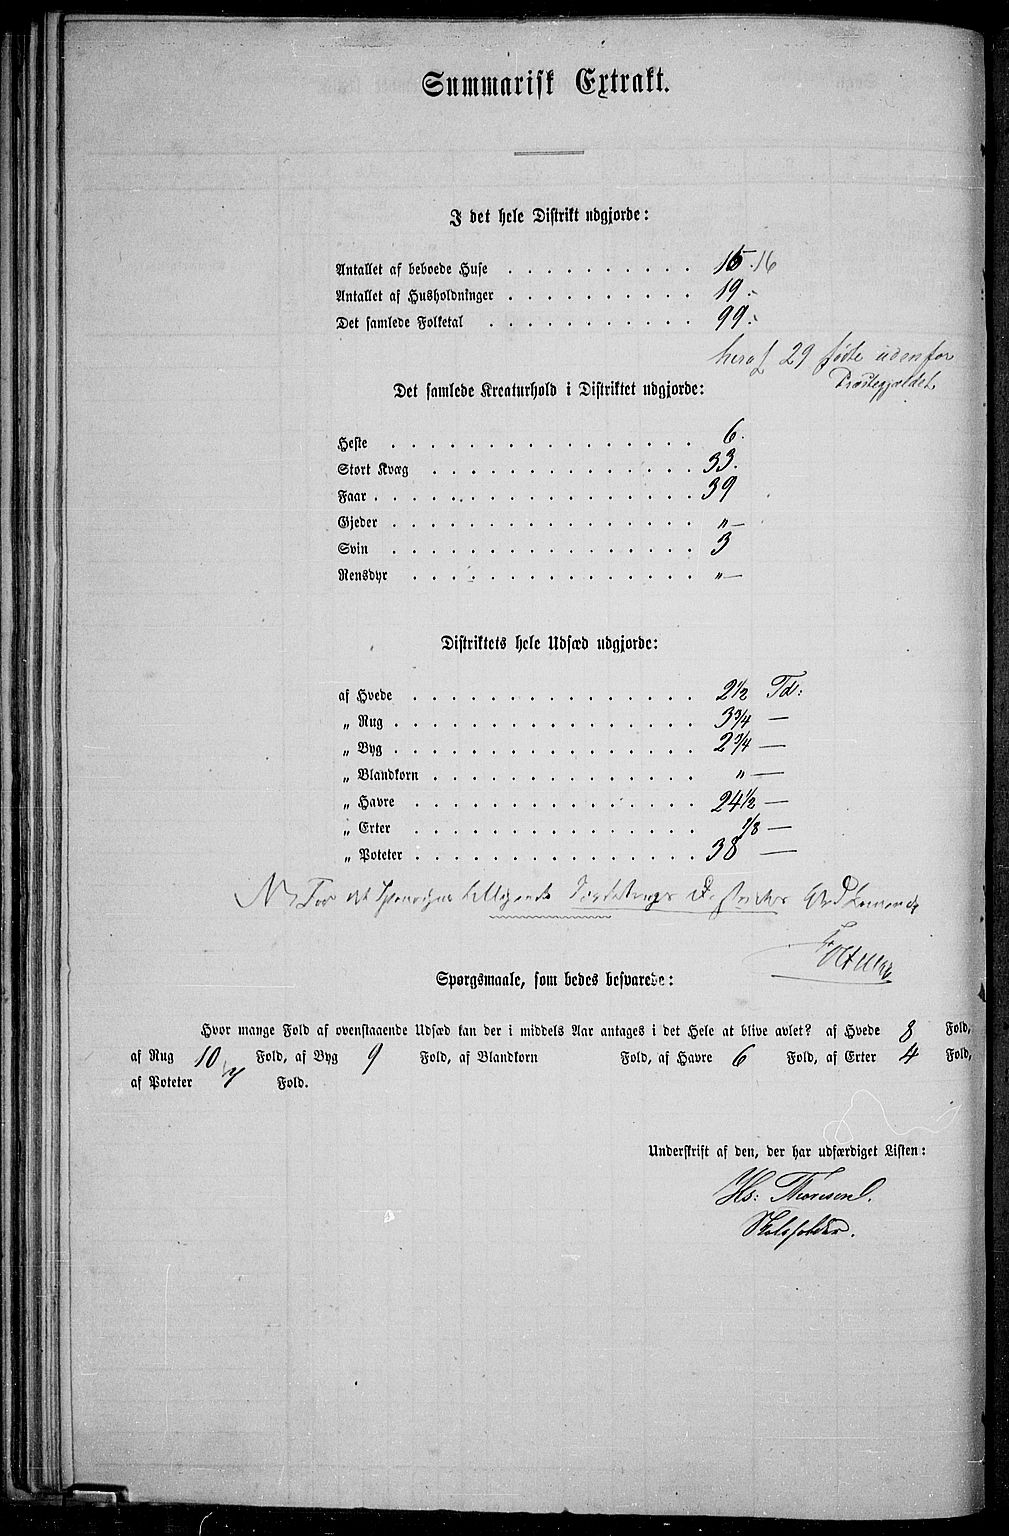 Summarisk Extrakt.
I det hele Distrikt udgjorde:
Antallet af beboede Huse . . . . . . . . . . 15. 16
Antallet af Husholdninger . . . . . . . . . . 19.
Det samlede Folketal . . . . . . . . . . . 99.
heraf 29 fødte udenfor
Præstegjældet.
Det samlede Kreaturhold i Distriktet udgjorde:
Heste . . . . . . . . . . . . . . . 6.
Stort Kvæg . . . . . . . . . . . . . 33.
Faar . . . . . . . . . . . . . . . . 39
Gjeder . . . . . . . . . . . . . . . „—
Svin . . . . . . . . . . . . . . . 3
Rensdyr . . . . . . . . . . . . . . „—
Distriktets hele Udsæd udgjorde:
af Hvede . . . . . . . . . . . . . . 2 1/2 Td:
„ Rug . . . . . . . . . . . . . . . 3 3/4 —
„ Byg . . . . . . . . . . . . . . . 2 3/4 —
„ Blandkorn . . . . . . . . . . . . . „ —
„ Havre . . . . . . . . . . . . . . 24 1/2 —
„ Erter . . . . . . . . . . . . . . 1/8 —
„ Poteter . . . . . . . . . . . . . . 38 —
Spørgsmaale, som bedes besvarede:
Hvor mange Fold af ovenstaaende Udsæd kan der i middels Aar antages i det Hele at blive avlet? af Hvede 8 Fold,
af Rug 10 Fold, af Byg 9 Fold, af Blandkorn Fold, af Havre 6 Fold, af Erter 4 Fold,
af Poteter 7 Fold.
Underskrift af den, der har udfærdiget Listen:
Hs: Thoresen.
Skoleholder.